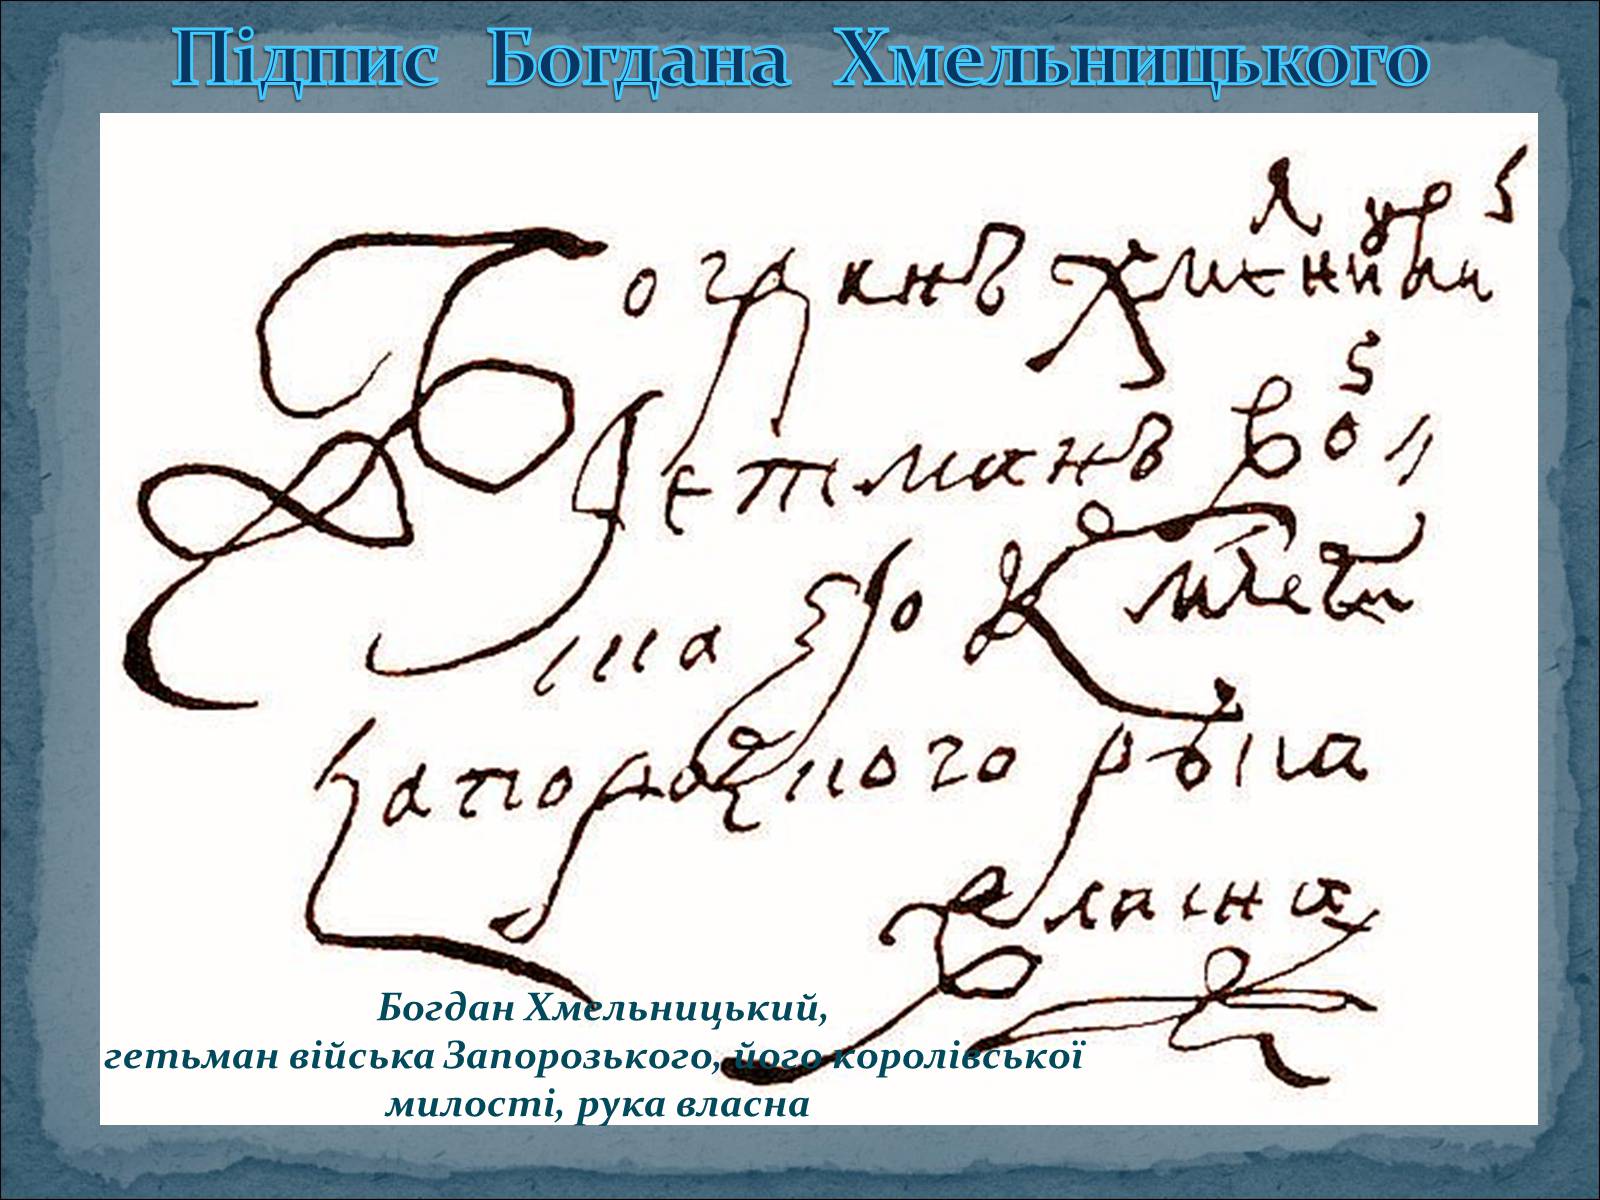 Підпис Богдана Хмельницького
Богданъ Хмелницкий
Гетманъ Войс
ка Его К Млсти
Запорозкого рука
власна
Богдан Хмельницький,
гетьман війська Запорозького, його королівської
милості, рука власна